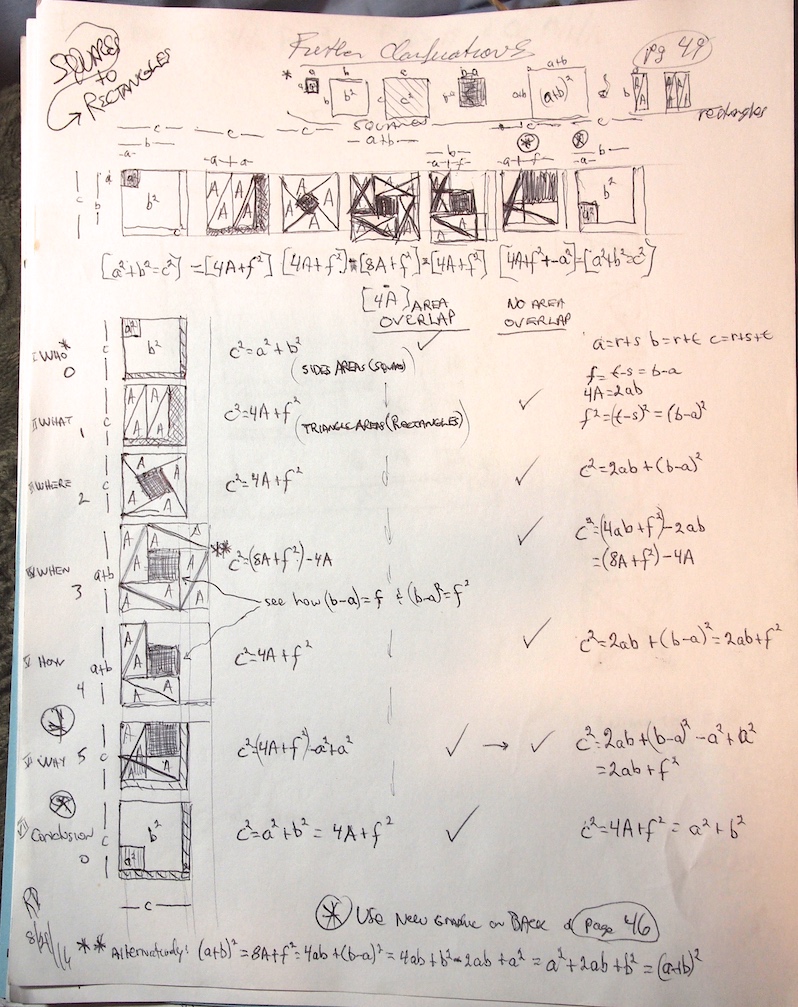 SQUARES
TO
RECTANGLES
Further Clarifications
pg 49
* a b c b-a a+b
a² b b² c c² a+b (a+b)² & b A A A A
SQUARES
rectangles
c c c a+b c c
b b
a a + a a + f a + f a b
c b a b² c² A A A A A A A A A A A A A A A a² b²
[a²+b²=c²] = [4A+f²] [4A+f²] = [8A+f²] = [4A+f²] [4A+f²+-a²] = [a²+b²=c²]
[4A] AREA
OVERLAP
NO AREA
OVERLAP
I WHO* 0 c a² b² c²=a²+b² (SIDES AREAS (SQUARES) ✓
a=r+s b=r+t c=r+s+t
f=t-s=b-a
4A=2ab
f²=(t-s)²=(b-a)²
II WHAT 1 c A A A A c²=4A+f² (TRIANGLE AREAS (RECTANGLES) ✓
III WHERE 2 c A A A A c²=4A+f² ✓ c²=2ab+(b-a)²
IV WHEN 3 a+b A A A A A A ** c²=(8A+f²)-4A ✓ c²=(4ab+f²)-2ab
=(8A+f²)-4A
see how (b-a)=f & (b-a)²=f²
V HOW 4 a+b A A A A c²=4A+f² ✓ c²=2ab+(b-a)²=2ab+f²
VI WAY 5 c A A A c²=(4A+f²)-a²+a² ✓ → ✓ c²=2ab+(b-a)²-a²+a²
=2ab+f²
Conclusion 0 c b² a² c²=a²+b²=4A+f² ✓ c²=4A+f²=a²+b²
c
* USE NEW GRAPHIC on BACK of page 46
** Alternatively: (a+b)²=8A+f²=4ab+(b-a)²=4ab+b²-2ab+a²=a²+2ab+b²=(a+b)²